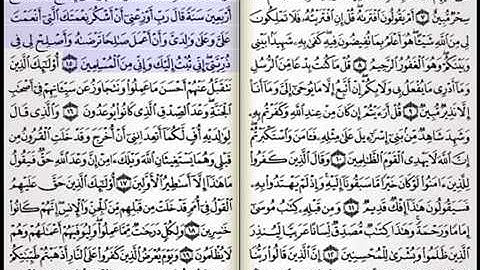 سِحْرٌ مُّبِينٌ ٧ أَمْ يَقُولُونَ ٱفْتَرَىٰهُ قُلْ إِنِ ٱفْتَرَيْتُهُۥ فَلَا تَمْلِكُونَ
لِى مِنَ ٱللَّهِ شَيْـًٔا هُوَ أَعْلَمُ بِمَا تُفِيضُونَ فِيهِ كَفَىٰ بِهِۦ شَهِيدًۢا بَيْنِى
وَبَيْنَكُمْ وَهُوَ ٱلْغَفُورُ ٱلرَّحِيمُ ٨ قُلْ مَا كُنتُ بِدْعًا مِّنَ ٱلرُّسُلِ
وَمَآ أَدْرِى مَا يُفْعَلُ بِى وَلَا بِكُمْ إِنْ أَتَّبِعُ إِلَّا مَا يُوحَىٰٓ إِلَىَّ وَمَآ أَنَا۠
إِلَّا نَذِيرٌ مُّبِينٌ ٩ قُلْ أَرَءَيْتُمْ إِن كَانَ مِنْ عِندِ ٱللَّهِ وَكَفَرْتُم بِهِۦ
وَشَهِدَ شَاهِدٌ مِّنۢ بَنِىٓ إِسْرَٰٓءِيلَ عَلَىٰ مِثْلِهِۦ فَـَٔامَنَ وَٱسْتَكْبَرْتُمْ
إِنَّ ٱللَّهَ لَا يَهْدِى ٱلْقَوْمَ ٱلظَّـٰلِمِينَ ١٠ وَقَالَ ٱلَّذِينَ كَفَرُوا۟
لِلَّذِينَ ءَامَنُوا۟ لَوْ كَانَ خَيْرًا مَّا سَبَقُونَآ إِلَيْهِ وَإِذْ لَمْ يَهْتَدُوا۟ بِهِۦ
فَسَيَقُولُونَ هَـٰذَآ إِفْكٌ قَدِيمٌ ١١ وَمِن قَبْلِهِۦ كِتَـٰبُ مُوسَىٰٓ
إِمَامًا وَرَحْمَةً وَهَـٰذَا كِتَـٰبٌ مُّصَدِّقٌ لِّسَانًا عَرَبِيًّا لِّيُنذِرَ
ٱلَّذِينَ ظَلَمُوا۟ وَبُشْرَىٰ لِلْمُحْسِنِينَ ١٢ إِنَّ ٱلَّذِينَ قَالُوا۟ رَبُّنَا
أَرْبَعِينَ سَنَةً قَالَ رَبِّ أَوْزِعْنِىٓ أَنْ أَشْكُرَ نِعْمَتَكَ ٱلَّتِىٓ أَنْعَمْتَ
عَلَىَّ وَعَلَىٰ وَٰلِدَىَّ وَأَنْ أَعْمَلَ صَـٰلِحًا تَرْضَىٰهُ وَأَصْلِحْ لِى فِى
ذُرِّيَّتِىٓ إِنِّى تُبْتُ إِلَيْكَ وَإِنِّى مِنَ ٱلْمُسْلِمِينَ ١٥ أُو۟لَـٰٓئِكَ ٱلَّذِينَ
نَتَقَبَّلُ عَنْهُمْ أَحْسَنَ مَا عَمِلُوا۟ وَنَتَجَاوَزُ عَن سَيِّـَٔاتِهِمْ فِىٓ أَصْحَـٰبِ
ٱلْجَنَّةِ وَعْدَ ٱلصِّدْقِ ٱلَّذِى كَانُوا۟ يُوعَدُونَ ١٦ وَٱلَّذِى قَالَ
لِوَٰلِدَيْهِ أُفٍّ لَّكُمَآ أَتَعِدَانِنِىٓ أَنْ أُخْرَجَ وَقَدْ خَلَتِ ٱلْقُرُونُ مِن
قَبْلِى وَهُمَا يَسْتَغِيثَانِ ٱللَّهَ وَيْلَكَ ءَامِنْ إِنَّ وَعْدَ ٱللَّهِ حَقٌّ فَيَقُولُ
مَا هَـٰذَآ إِلَّآ أَسَـٰطِيرُ ٱلْأَوَّلِينَ ١٧ أُو۟لَـٰٓئِكَ ٱلَّذِينَ حَقَّ عَلَيْهِمُ
ٱلْقَوْلُ فِىٓ أُمَمٍ قَدْ خَلَتْ مِن قَبْلِهِم مِّنَ ٱلْجِنِّ وَٱلْإِنسِ إِنَّهُمْ كَانُوا۟
خَـٰسِرِينَ ١٨ وَلِكُلٍّ دَرَجَـٰتٌ مِّمَّا عَمِلُوا۟ وَلِيُوَفِّيَهُمْ أَعْمَـٰلَهُمْ وَهُمْ
لَا يُظْلَمُونَ ١٩ وَيَوْمَ يُعْرَضُ ٱلَّذِينَ كَفَرُوا۟ عَلَى ٱلنَّارِ أَذْهَبْتُمْ طَيِّبَـٰتِكُمْ